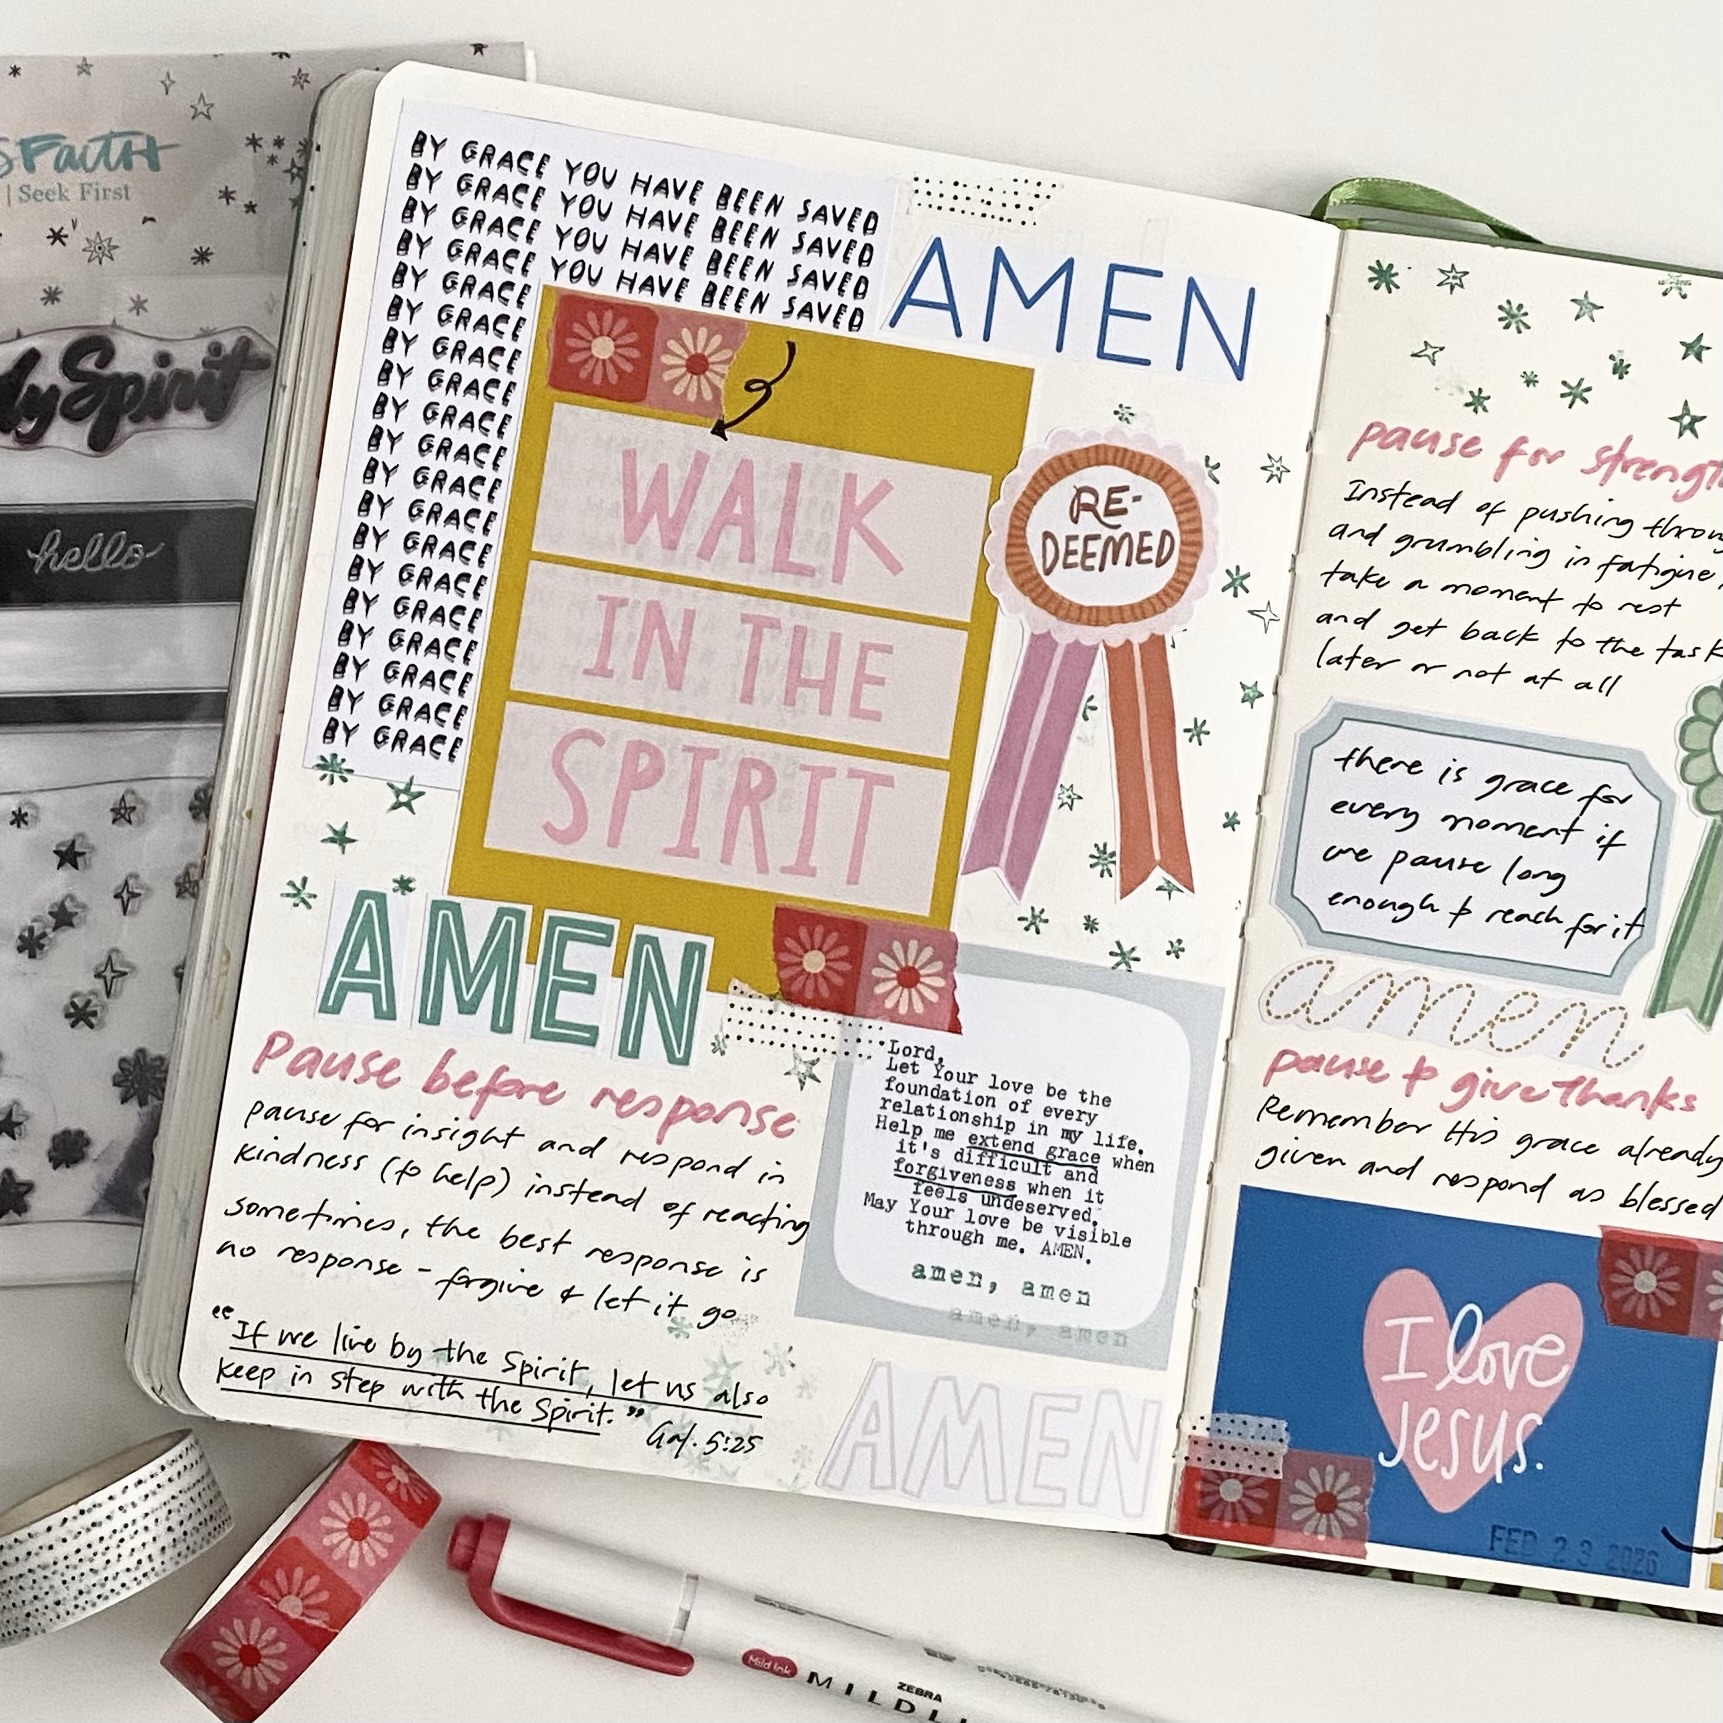 FAITH
| Seek First
Spirit
hello
BY GRACE YOU HAVE BEEN SAVED
BY GRACE YOU HAVE BEEN SAVED
BY GRACE YOU HAVE BEEN SAVED
BY GRACE YOU HAVE BEEN SAVED
BY GRACE
BY GRACE
BY GRACE
BY GRACE
BY GRACE
BY GRACE
BY GRACE
BY GRACE
BY GRACE
BY GRACE
BY GRACE
BY GRACE
BY GRACE
BY GRACE
BY GRACE
AMEN
WALK
IN THE
SPIRIT
RE-
DEEMED
AMEN
Pause before response
pause for insight and respond in
kindness (to help) instead of reacting
sometimes, the best response is
no response - forgive & let it go
"If we live by the Spirit, let us also
keep in step with the Spirit." Gal. 5:25
Lord,
Let Your love be the
foundation of every
relationship in my life.
Help me extend grace when
it's difficult and
forgiveness when it
feels undeserved.
May Your love be visible
through me. AMEN.
amen, amen
amen, amen
AMEN
pause for strength
Instead of pushing
and grumbling in fatigue,
take a moment to rest
and get back to the task
later or not at all
there is grace for
every moment if
we pause long
enough to reach for it
amen
pause to give thanks
Remember His grace already
given and respond as blessed
I love
Jesus.
FEB 23 2026
Mild Ink
ZEBRA